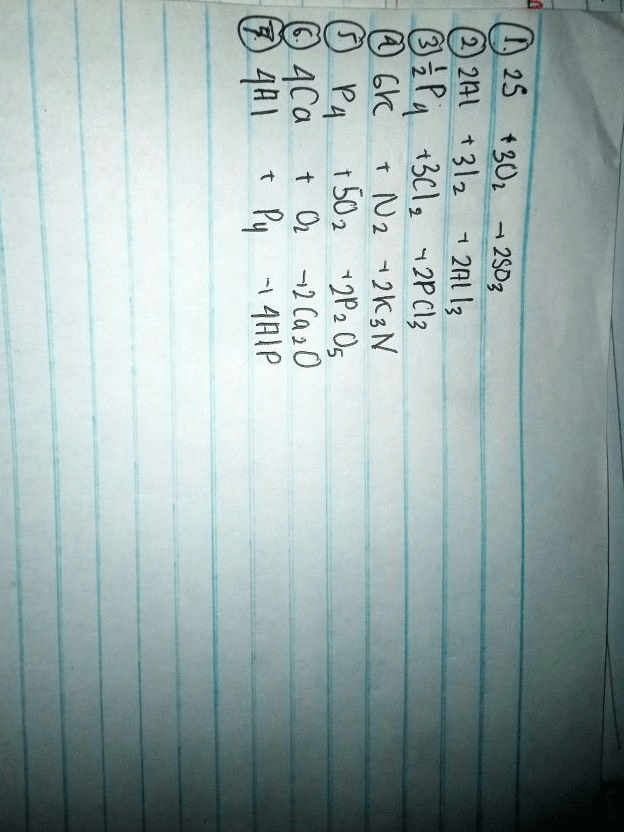 ① 2S + 3O₂ → 2SO₃
② 2Al + 3I₂ → 2AlI₃
③ ½P₄ + 3Cl₂ → 2PCl₃
④ 6K + N₂ → 2K₃N
⑤ P₄ + 5O₂ → 2P₂O₅
⑥ 4Ca + O₂ → 2Ca₂O
⑦ 4Al + P₄ → 4AlP